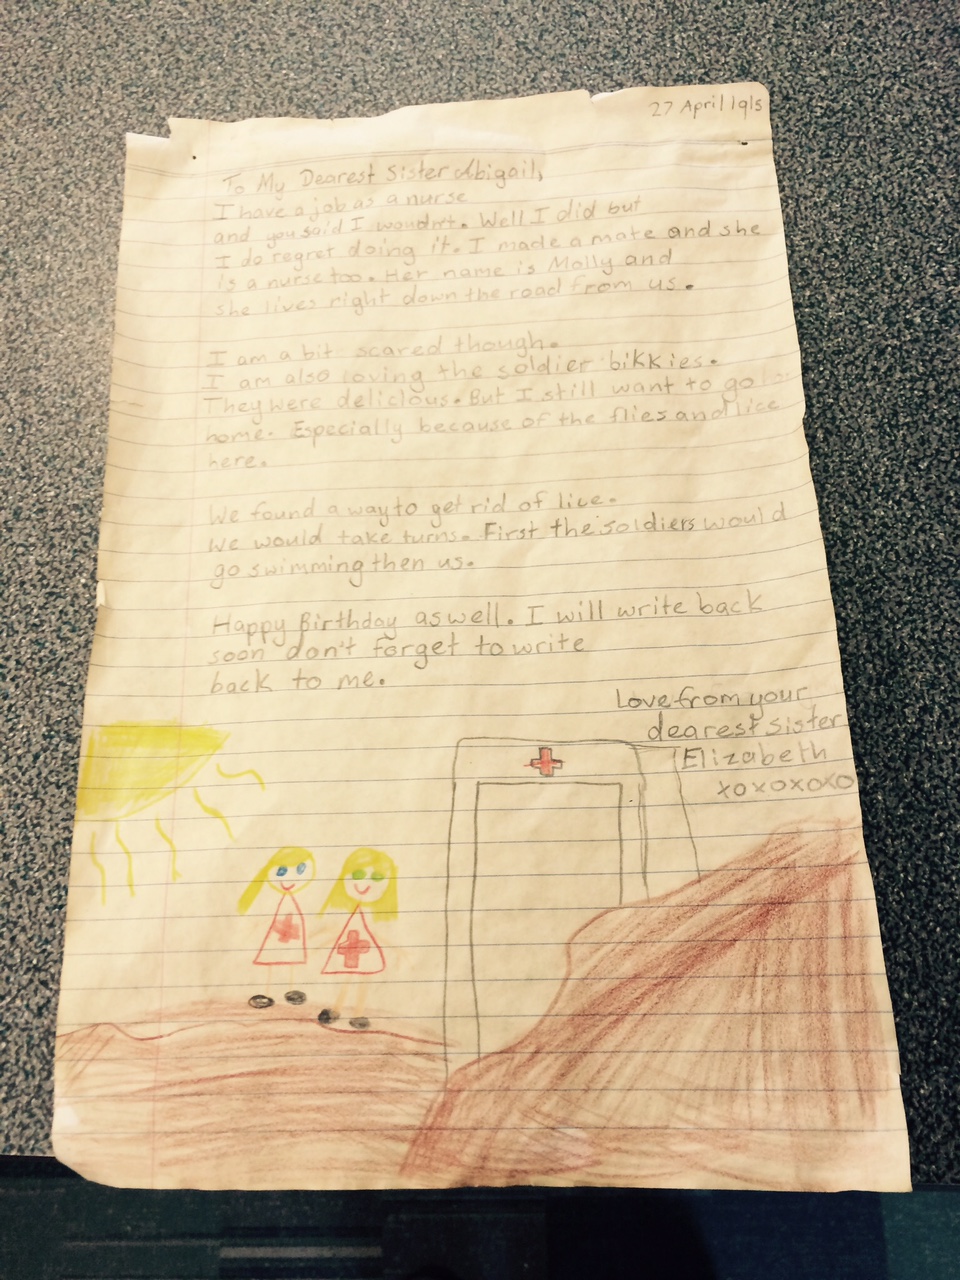 27 April 1915
To My Dearest Sister Abigail,
I have a job as a nurse
and you said I woudn't. Well I did but
I do regret doing it. I made a mate and she
is a nurse too. Her name is Molly and
she lives right down the road from us.
I am a bit scared though.
I am also loving the soldier bikkies.
They were delicious. But I still want to go
home. Especially because of the flies and lice
here.
We found a way to get rid of lice.
We would take turns. First the soldiers would
go swimming then us.
Happy Birthday aswell. I will write back
soon don't forget to write
back to me.
Love from your
dearest sister
Elizabeth
xoxoxoxo